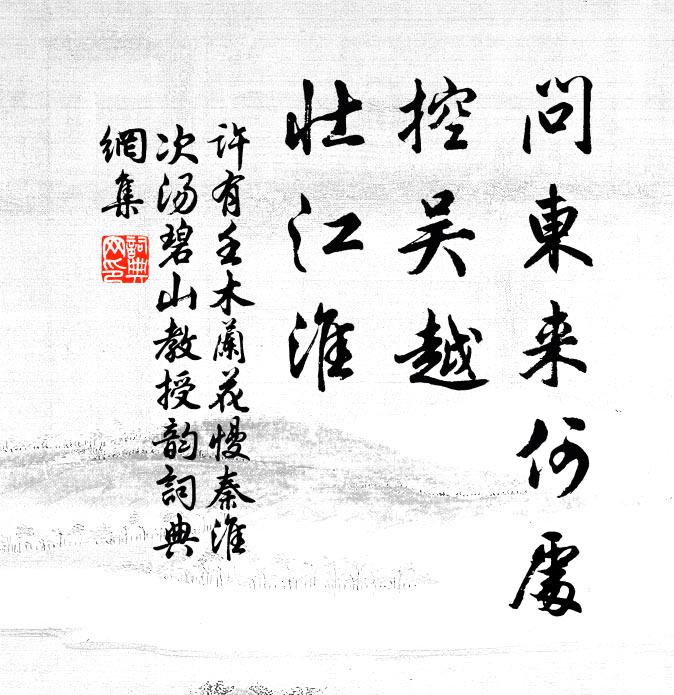 問東来何處
控吴越
壮江淮
許有壬木蘭花慢秦淮
次汤碧山教授韵詞典
網集
詞典网印